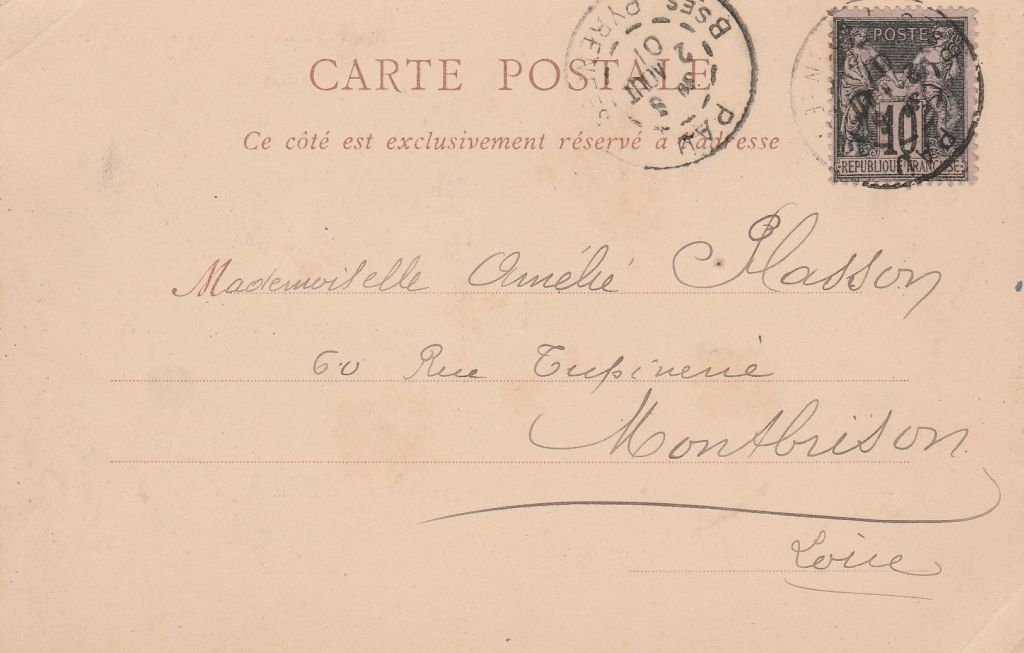 CARTE POSTALE
Ce côté est exclusivement réservé à l'adresse
PAU
Bses PYRENEES
3 AOUT
01
POSTE
10
REPUBLIQUE FRANCAISE
PAU
Mademoiselle Amélie Plasson
60 Rue Tupinerie
Montbrison
Loire